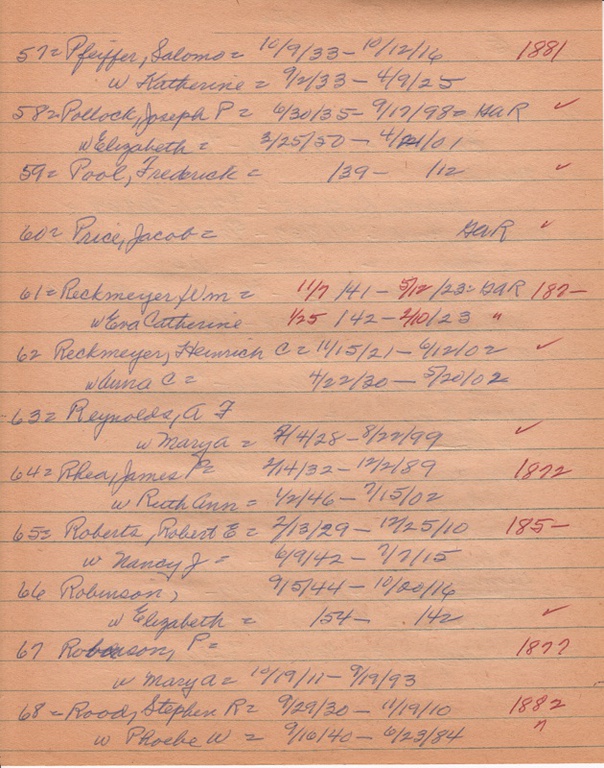 57= Pfeiffer, Salomo= 10/9/33 - 10/12/16 1881
w Katherine = 9/2/33 - 4/9/25
58= Pollock, Joseph P= 6/30/35 - 9/17/98= GaR ✓
w Elizabeth = 3/25/50 - /01
59= Pool, Frederick = /39 - /12 ✓
60= Price, Jacob= GaR ✓
61= Reckmeyer, Wm = 11/7 /41 - 5/12 /23= GaR 187-
w Eva Catherine 1/25 /42 - 2/10/23 "
62 Reckmeyer, Heinrich C= 11/15/21 - 6/12/02 ✓
w Anna C = 4/22/30 - 5/20/02
63= Reynolds, A F
w Mary A = 7/4/28 - 8/22/99 ✓
64= Rhea, James P= 2/14/32 - 12/2/89 1872
w Ruth Ann = 1/2/46 - 7/15/02
65= Roberts, Robert E = 2/13/29 - 12/25/10 185-
w Nancy J = 6/9/42 - 7/7/15
66 Robinson, 9/5/44 - 10/20/16
w Elizabeth = /54 - /42 ✓
67 P= 1877
w Mary A = 10/19/11 - 9/19/93
68= Rood, Stephen R= 9/29/30 - 11/19/10 1882
w Phoebe W = 9/16/40 - 6/23/84 "